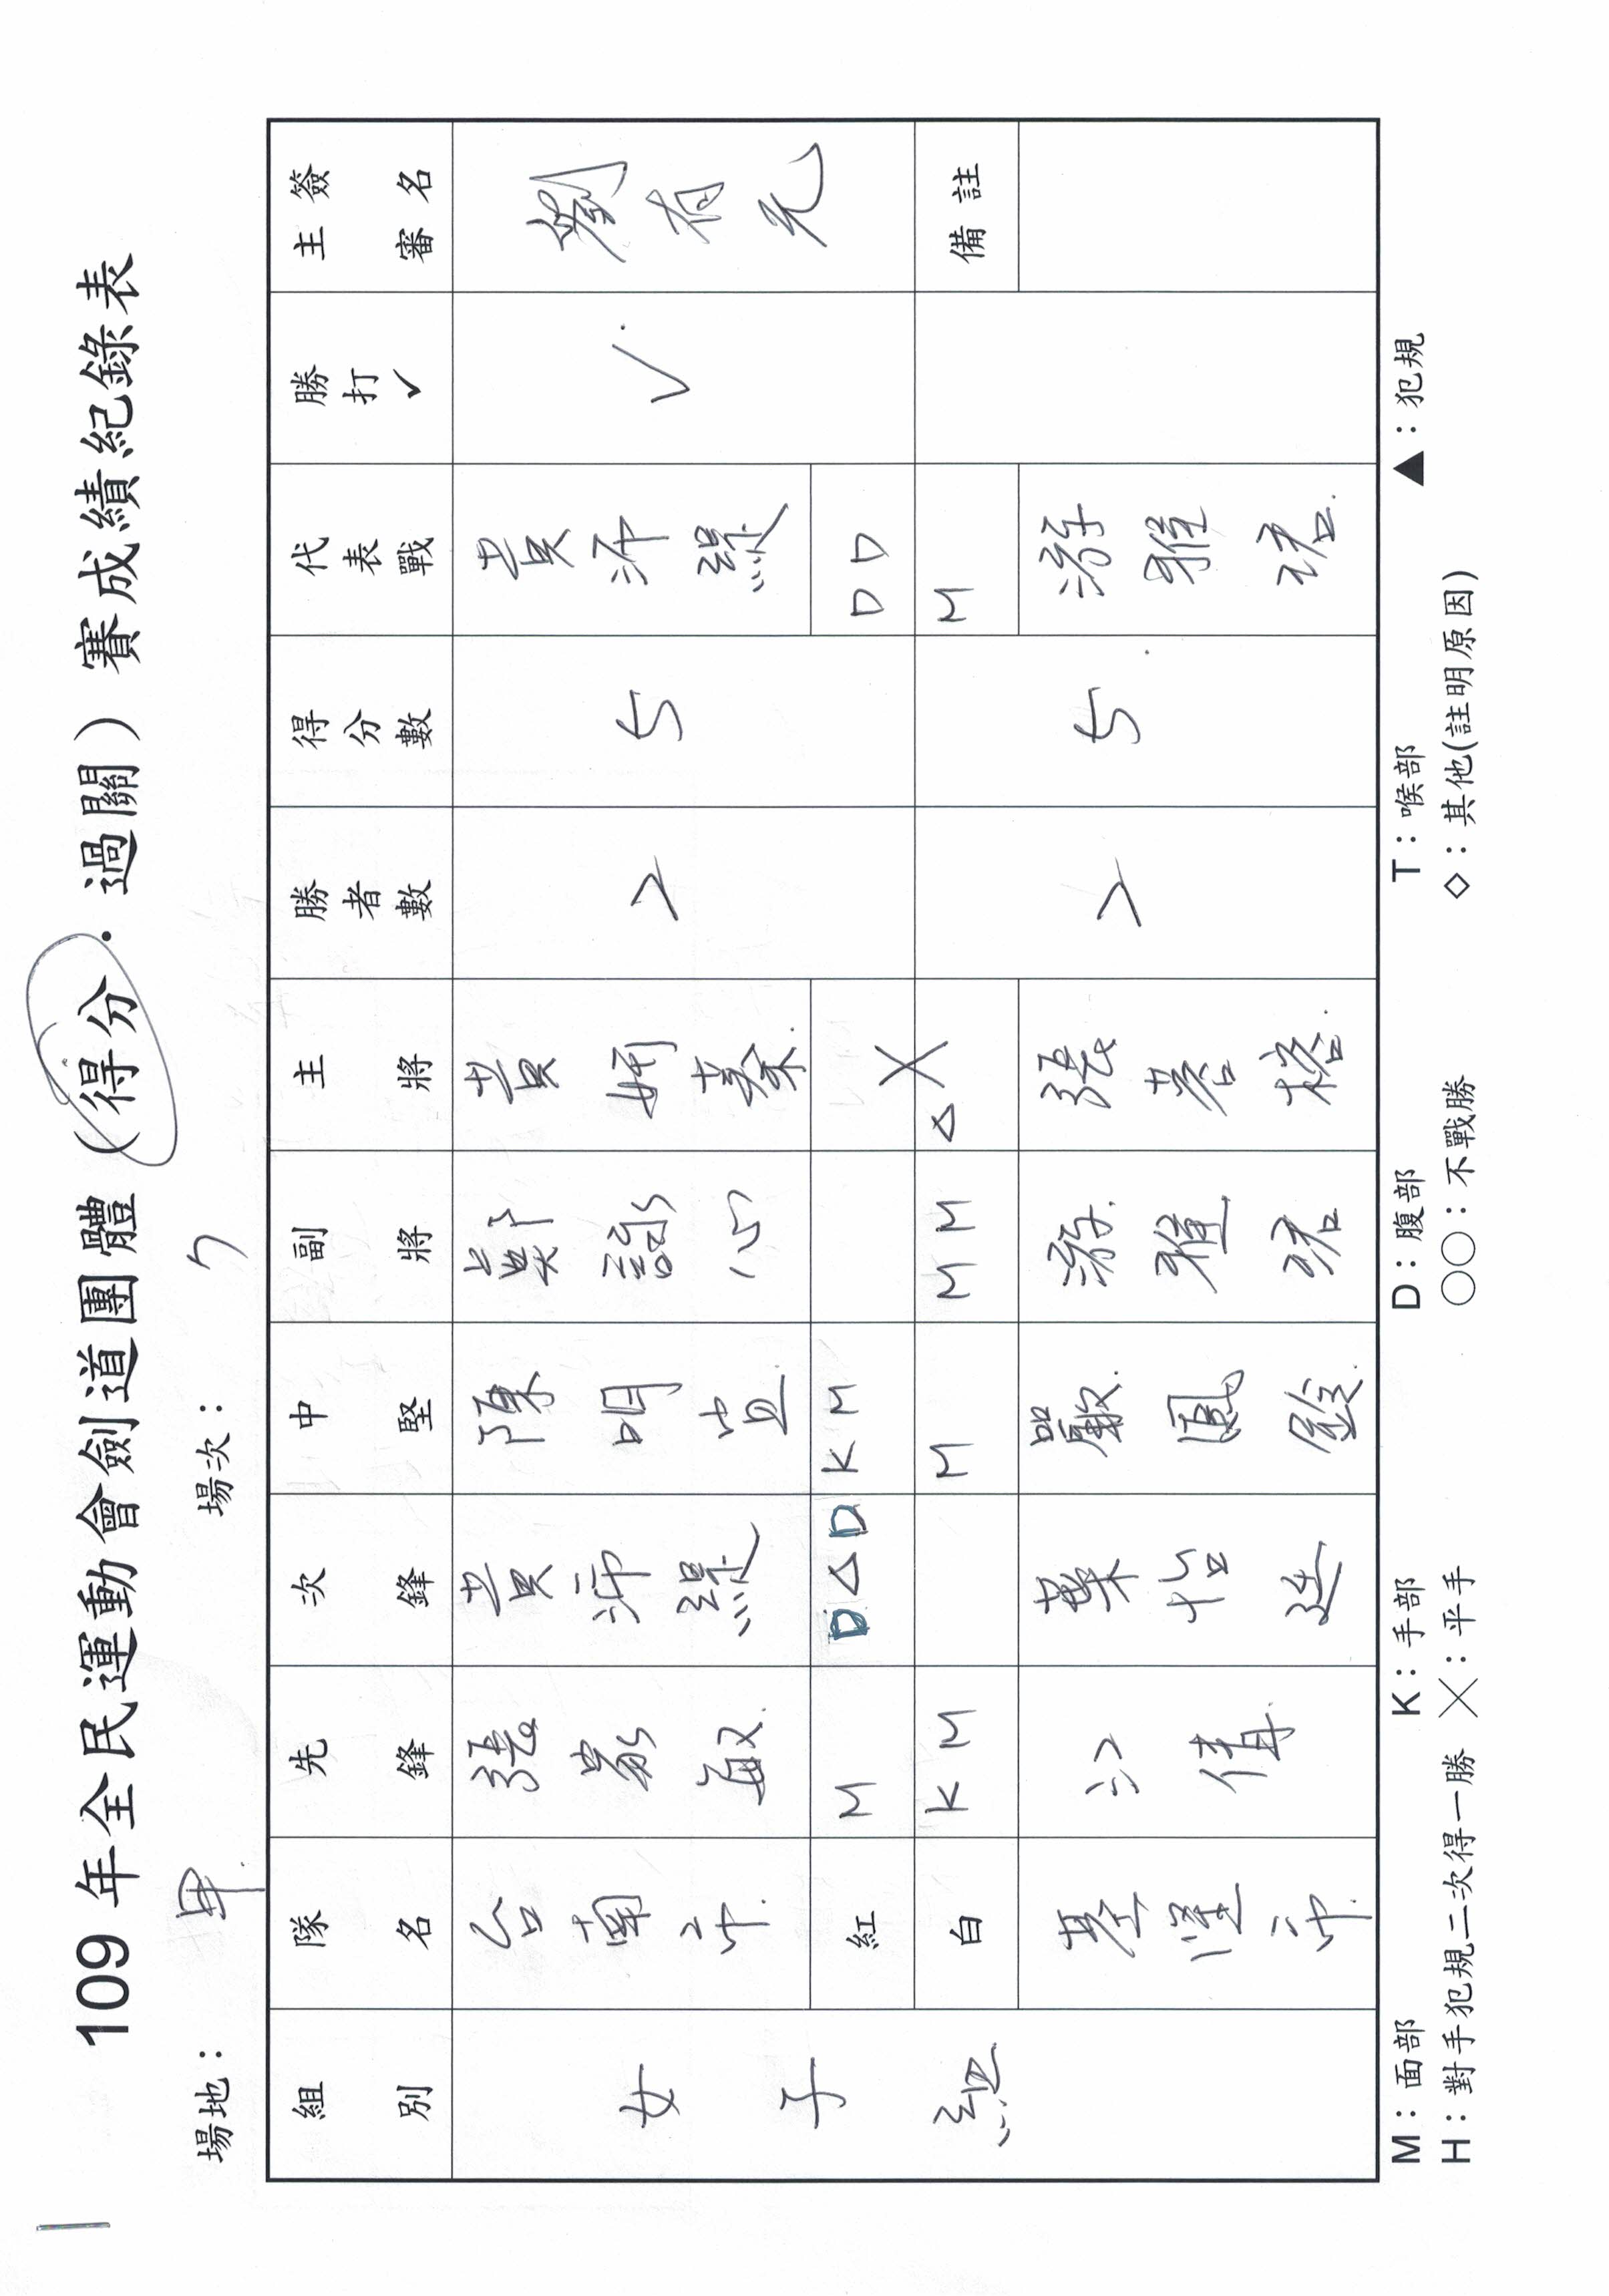 109 年全民運動會劍道團體（得分．過關）賽成績紀錄表
場地： 甲 場次： 7
組別 隊名 先鋒 次鋒 中堅 副將 主將 勝者數 得分數 代表戰 勝打✓ 主審簽名
女子組 台南市 張家敏 黃沛緹 陳明 詠心 黃 蓁 2 5 黃沛緹 ✓ 劉有元
紅 M D△D K M D D
白 K M M M M △ × M 備註
基隆市 江倩 葉怡廷 嚴鳳 游雅珺 張若榕 2 5 游雅珺
M：面部 K：手部 D：腹部 T：喉部 ▲：犯規
H：對手犯規二次得一勝 ╳：平手 ○○：不戰勝 ◇：其他(註明原因)